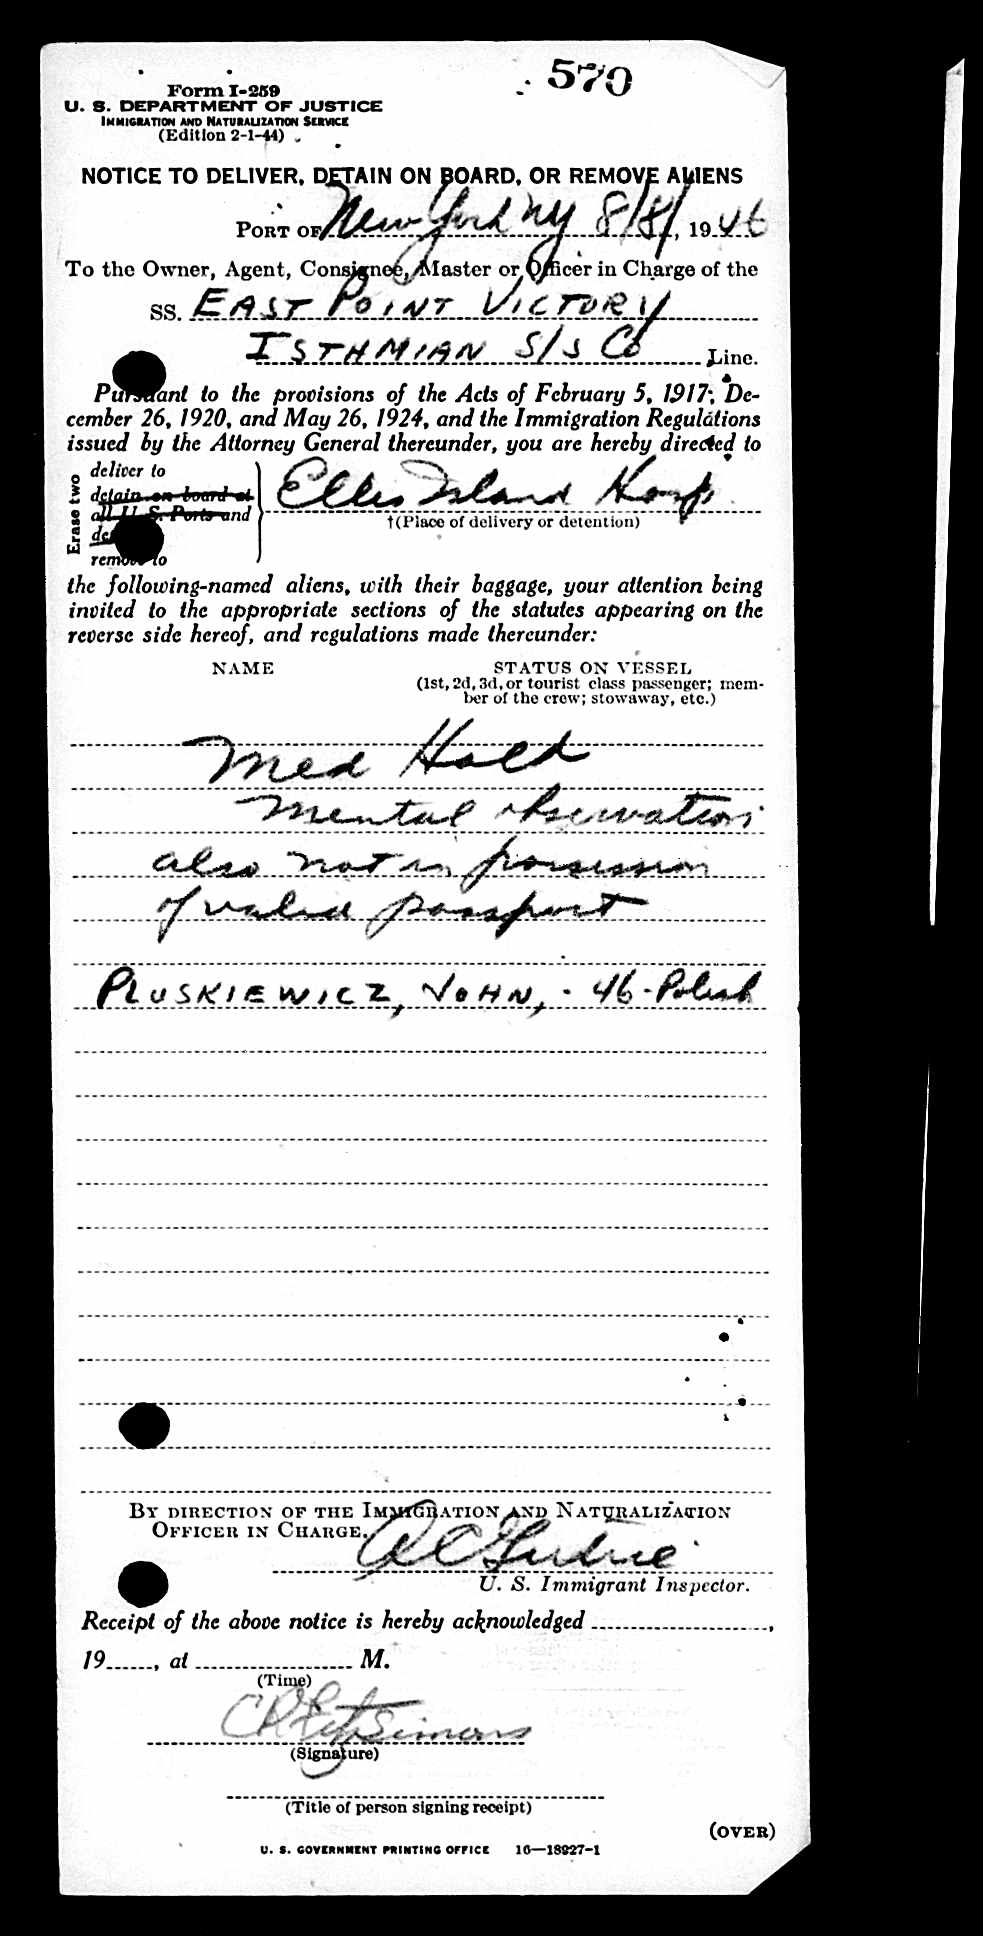 570
Form I-259
U. S. DEPARTMENT OF JUSTICE
IMMIGRATION AND NATURALIZATION SERVICE
(Edition 2-1-44)
NOTICE TO DELIVER, DETAIN ON BOARD, OR REMOVE ALIENS
PORT OF New York NY 8/8/, 1946
To the Owner, Agent, Consignee, Master or Officer in Charge of the
SS. EAST POINT VICTORY
ISTHMIAN S/S Co Line.
Pursuant to the provisions of the Acts of February 5, 1917, De-
cember 26, 1920, and May 26, 1924, and the Immigration Regulations
issued by the Attorney General thereunder, you are hereby directed to
Erase two
deliver to
detain on board at
all U. S. Ports and
remove to
Ellis Island Hosp.
†(Place of delivery or detention)
the following-named aliens, with their baggage, your attention being
invited to the appropriate sections of the statutes appearing on the
reverse side hereof, and regulations made thereunder:
NAME STATUS ON VESSEL
(1st, 2d, 3d, or tourist class passenger; mem-
ber of the crew; stowaway, etc.)
Med Hold
Mental observation
also not in possession
of valid passport
PLUSKIEWICZ, JOHN, - 46 - Polish
BY DIRECTION OF THE IMMIGRATION AND NATURALIZATION
OFFICER IN CHARGE.
U. S. Immigrant Inspector.
Receipt of the above notice is hereby acknowledged ,
19 , at M.
(Time)
CR Fitzsimons
(Signature)
(Title of person signing receipt)
(OVER)
U. S. GOVERNMENT PRINTING OFFICE 16—18927-1